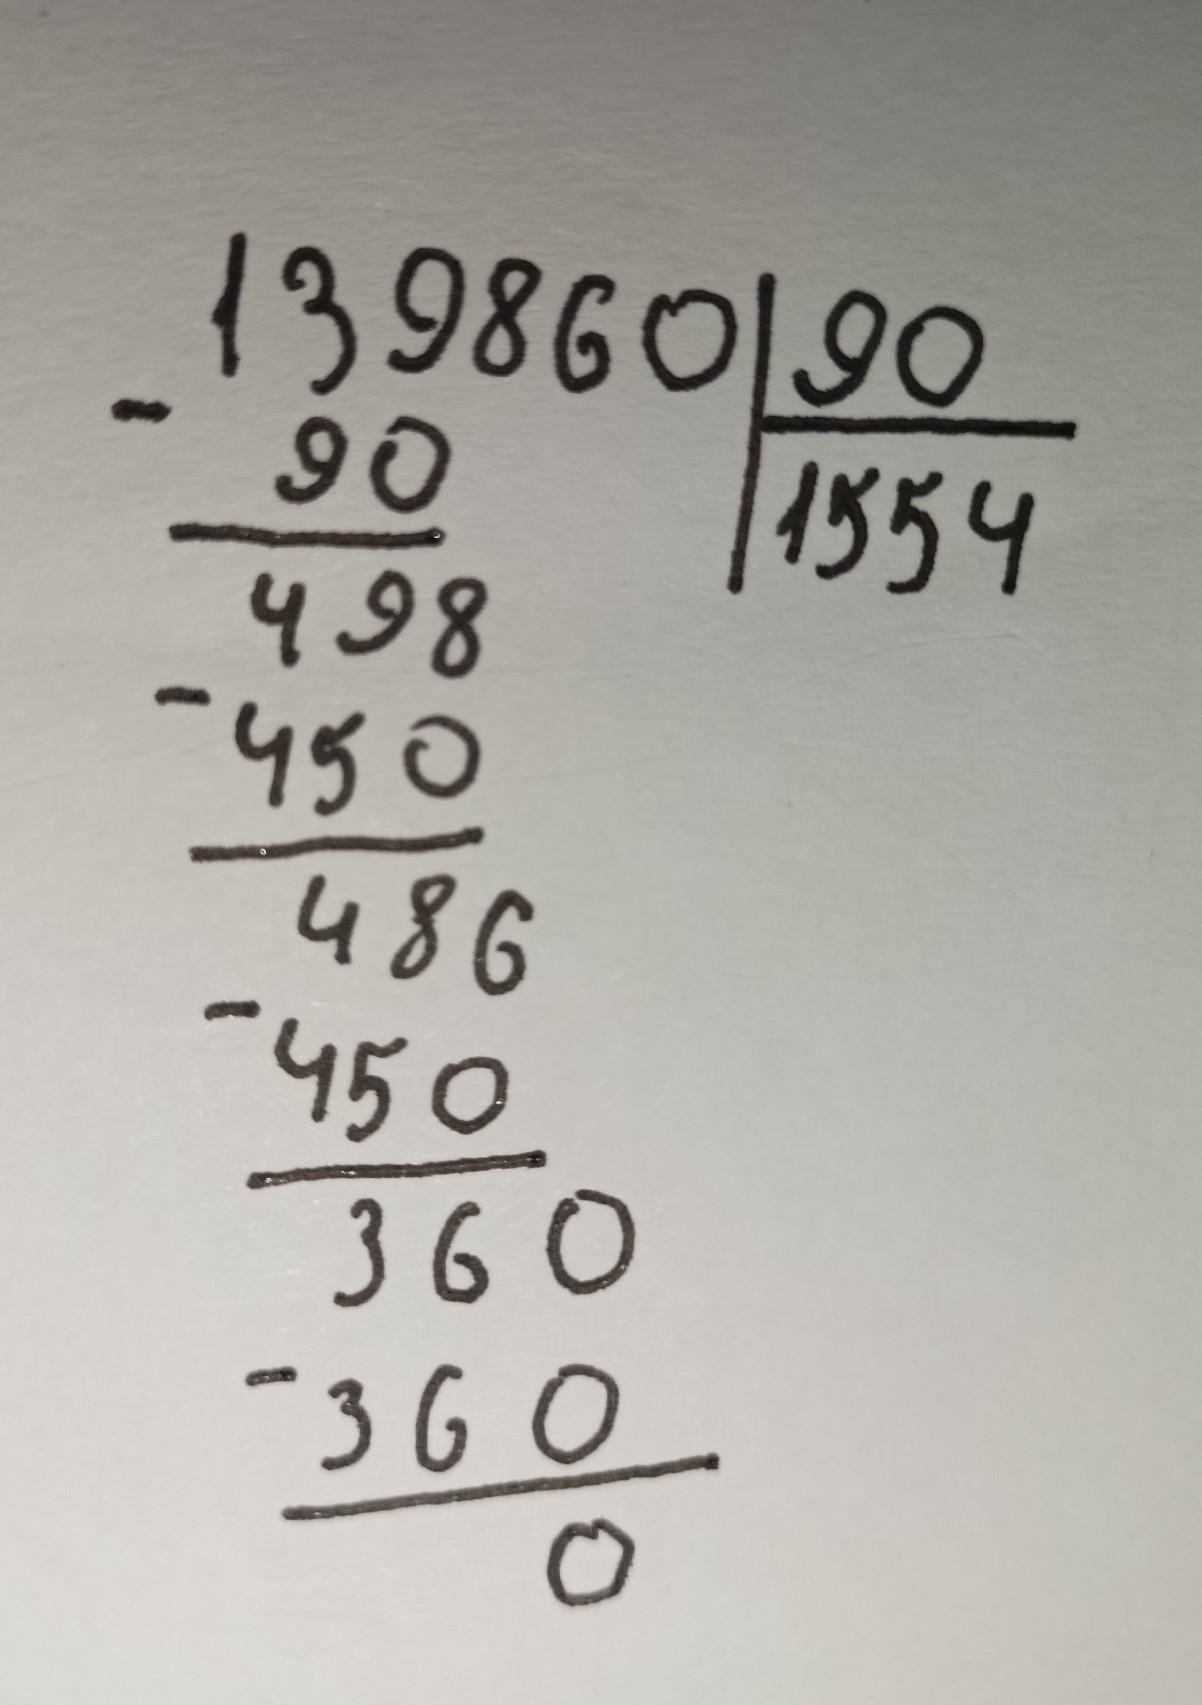 139860 90
- 90 1554
498
- 450
486
- 450
360
- 360
0